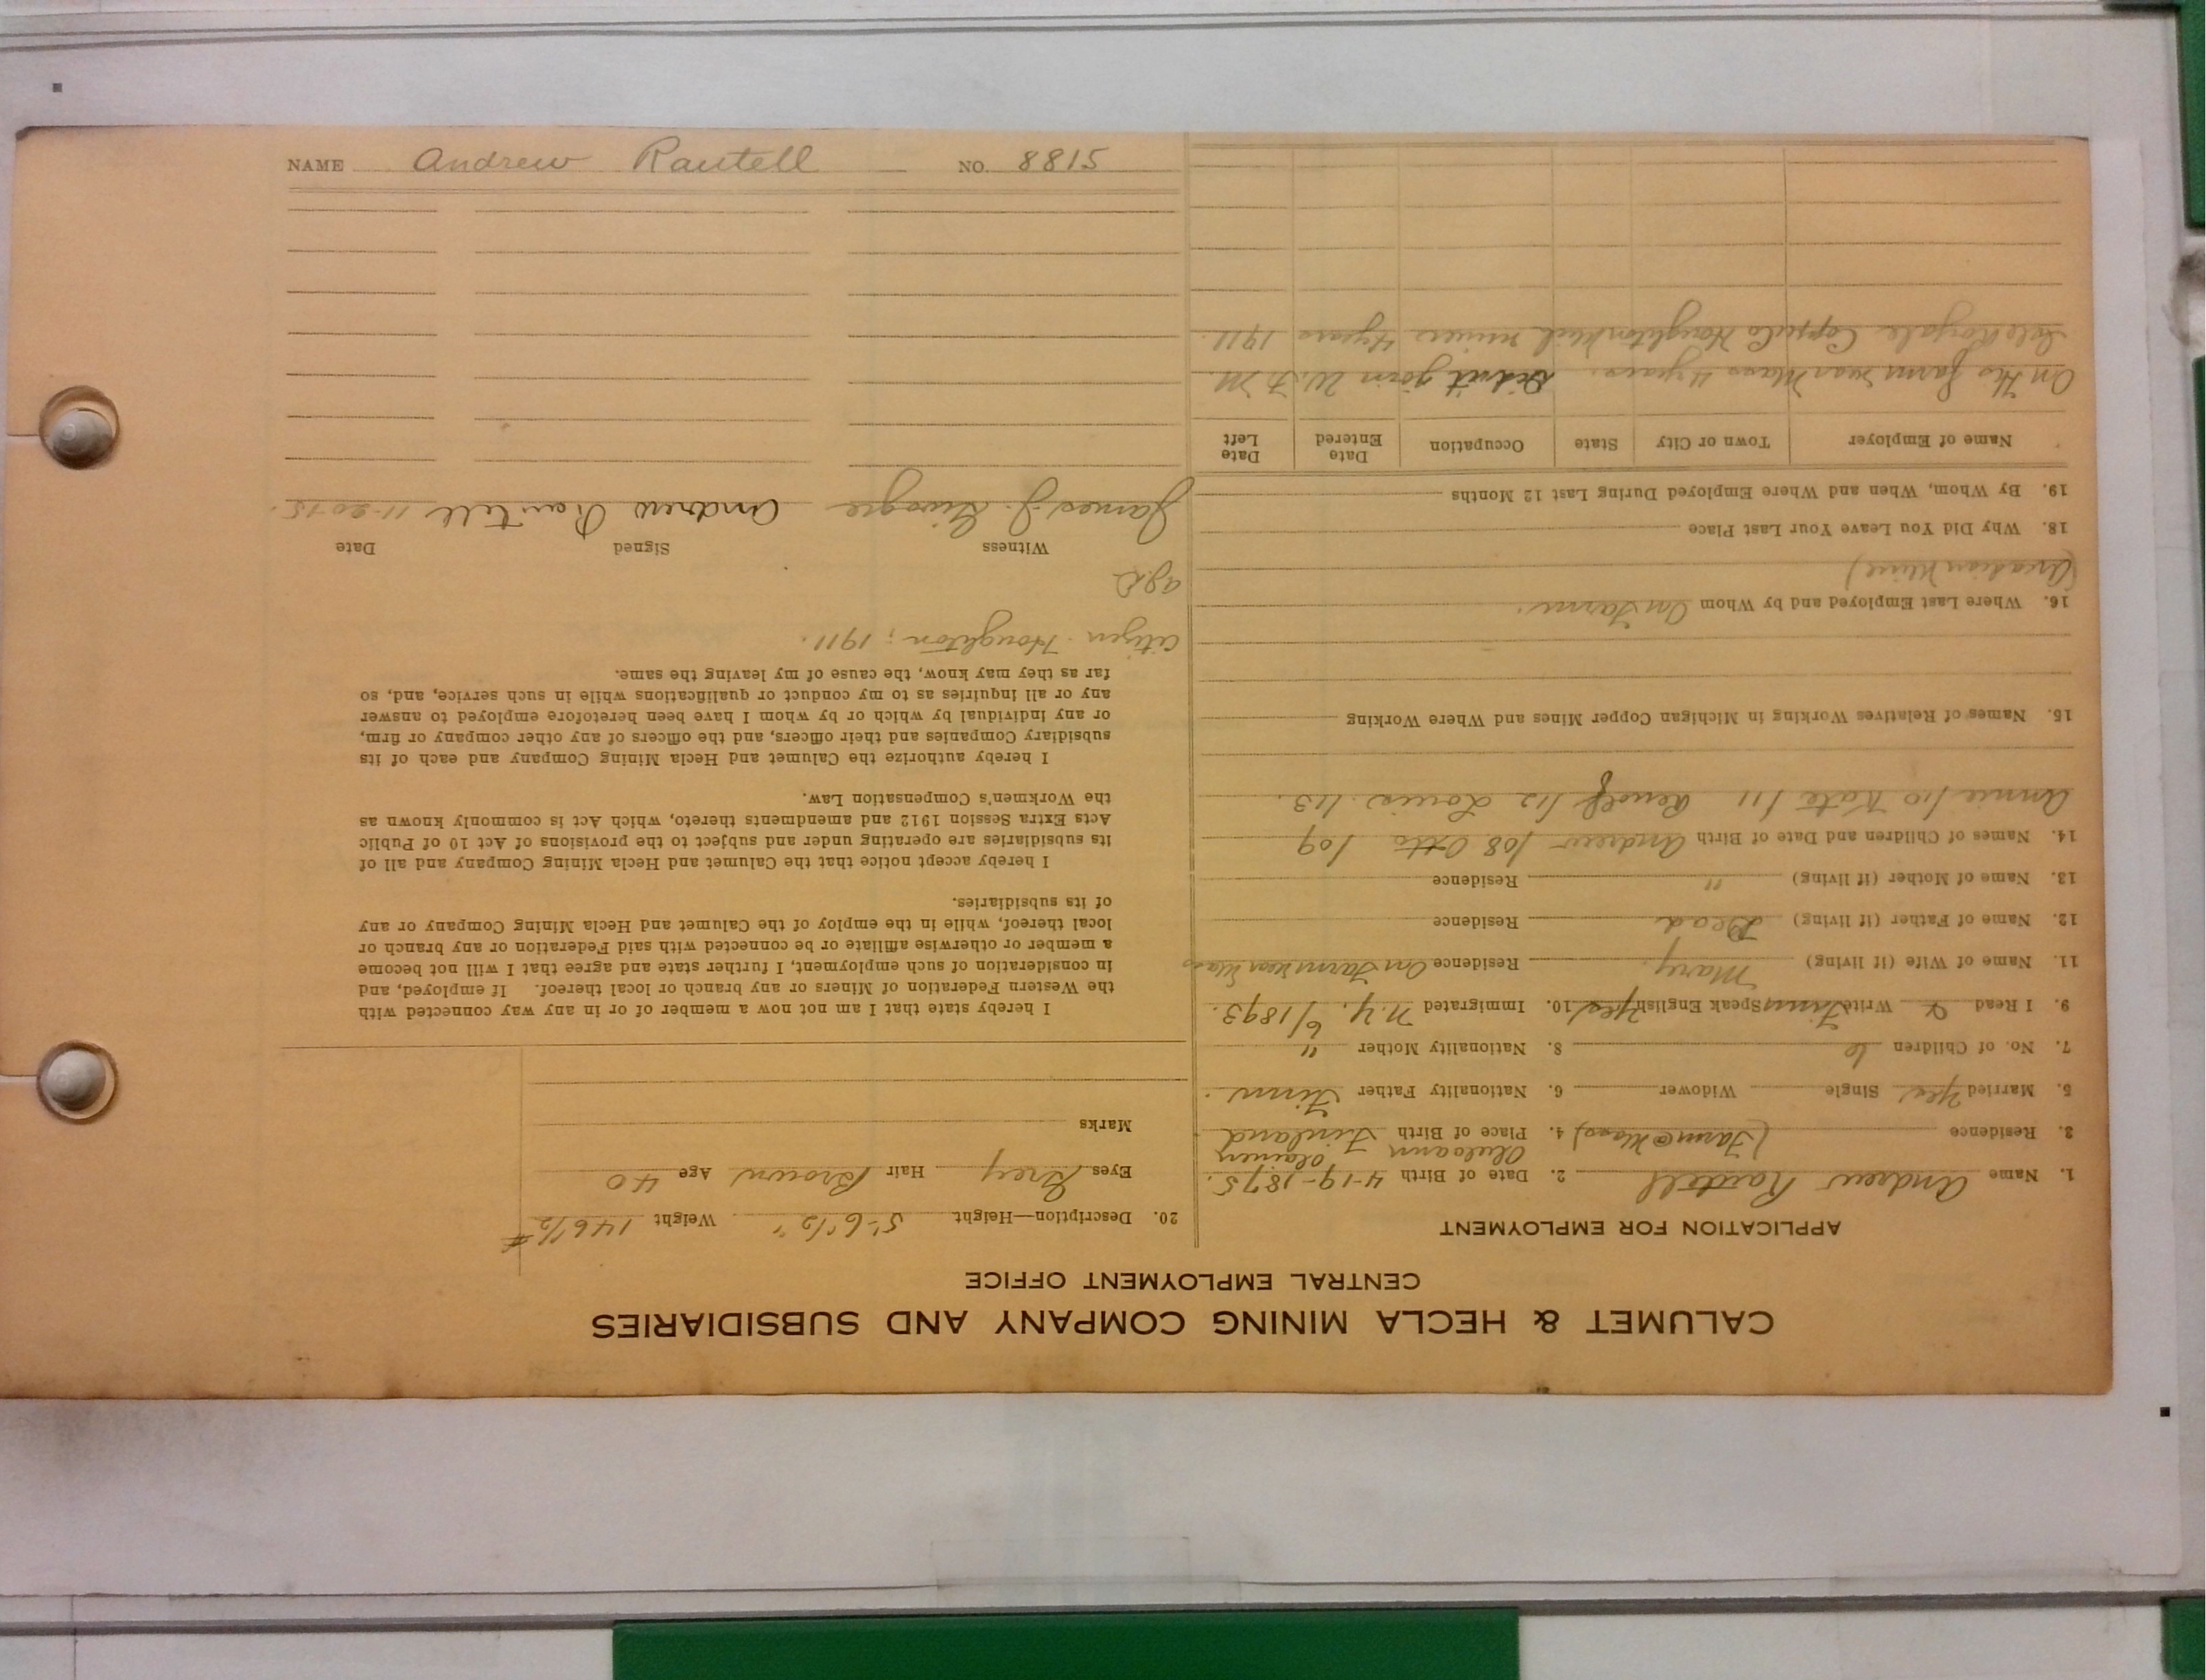 CALUMET & HECLA MINING COMPANY AND SUBSIDIARIES
CENTRAL EMPLOYMENT OFFICE
APPLICATION FOR EMPLOYMENT
1. Name Andrew Rautell 2. Date of Birth 4-19-1875.
3. Residence (Farm @ Mass) 4. Place of Birth Finland
5. Married Yes Single Widower 6. Nationality Father Finn.
7. No. of Children 6 8. Nationality Mother "
9. I Read & Write Finn Speak English Yes 10. Immigrated N.Y. 6/1893.
11. Name of Wife (if living) Mary. Residence On Farm near Mass
12. Name of Father (if living) Dead Residence
13. Name of Mother (if living) " Residence
14. Names of Children and Date of Birth Andrew /08 Otto /09
Annie /10 Kate /11 /12 Louis /13.
15. Names of Relatives Working in Michigan Copper Mines and Where Working
16. Where Last Employed and by Whom On Farm.
(Arcadian Mine)
18. Why Did You Leave Your Last Place
19. By Whom, When and Where Employed During Last 12 Months
Name of Employer Town or City State Occupation Date Entered Date Left
On His farm near Mass 4 years. Didn't join W.F.M.
Isle Royale Houghton Mich miner 4 years 1911.
20. Description—Height 5'-6 1/2" Weight 146 1/2 #
Eyes Grey Hair Brown Age 40
Marks
I hereby state that I am not now a member of or in any way connected with
the Western Federation of Miners or any branch or local thereof. If employed, and
in consideration of such employment, I further state and agree that I will not become
a member or otherwise affiliate or be connected with said Federation or any branch or
local thereof, while in the employ of the Calumet and Hecla Mining Company or any
of its subsidiaries.
I hereby accept notice that the Calumet and Hecla Mining Company and all of
its subsidiaries are operating under and subject to the provisions of Act 10 of Public
Acts Extra Session 1912 and amendments thereto, which Act is commonly known as
the Workmen's Compensation Law.
I hereby authorize the Calumet and Hecla Mining Company and each of its
subsidiary Companies and their officers, and the officers of any other company or firm,
or any individual by which or by whom I have been heretofore employed to answer
any or all inquiries as to my conduct or qualifications while in such service, and, so
far as they may know, the cause of my leaving the same.
Citizen - Houghton; 1911.
Witness Signed Date
James J. Andrew Rautell 11-20-15.
NAME Andrew Rautell NO. 8815